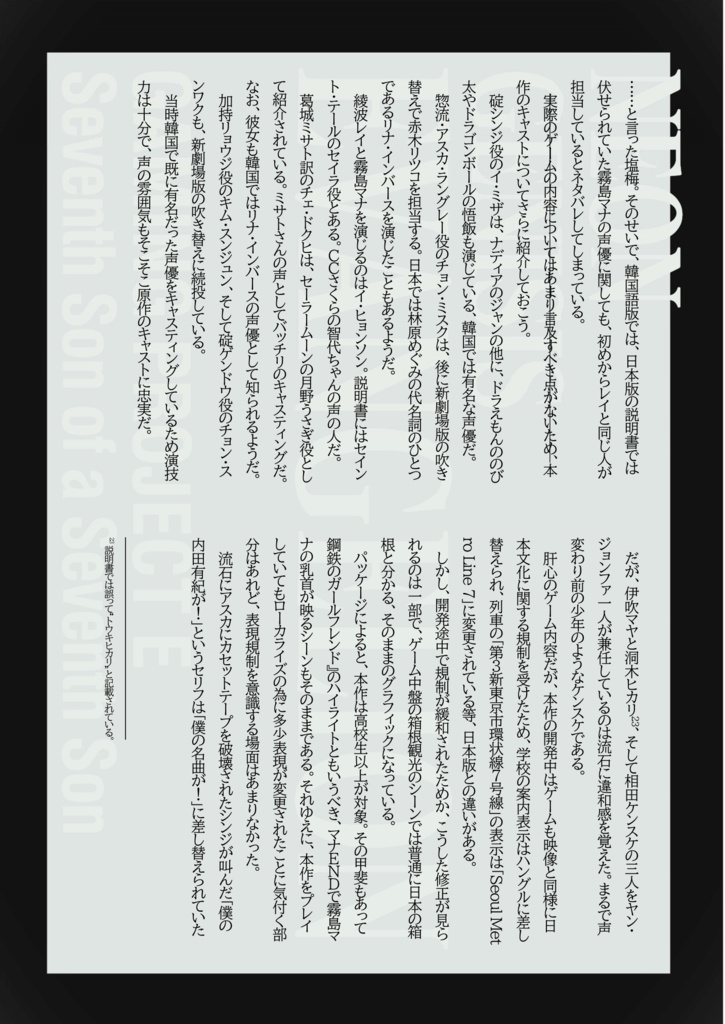 ……と言った塩梅。そのせいで、韓国語版では、日本版の説明書では
伏せられていた霧島マナの声優に関しても、初めからレイと同じ人が
担当しているとネタバレしてしまっている。
実際のゲームの内容についてはあまり言及すべき点がないため、本
作のキャストについてさらに紹介しておこう。
碇シンジ役のイ・ミザは、ナディアのジャンの他に、ドラえもんののび
太やドラゴンボールの悟飯も演じている、韓国では有名な声優だ。
惣流・アスカ・ラングレー役のチョン・ミスクは、後に新劇場版の吹き
替えで赤木リツコを担当する。日本では林原めぐみの代名詞のひとつ
であるリナ・インバースを演じたこともあるようだ。
綾波レイと霧島マナを演じるのはイ・ヒョンソン。説明書にはセイン
ト・テールのセイラ役とある。CCさくらの智代ちゃんの声の人だ。
葛城ミサト訳のチェ・ドクヒは、セーラームーンの月野うさぎ役とし
て紹介されている。ミサトさんの声としてバッチリのキャスティングだ。
なお、彼女も韓国ではリナ・インバースの声優として知られるようだ。
加持リョウジ役のキム・スンジュン、そして碇ゲンドウ役のチョン・ス
ンワクも、新劇場版の吹き替えに続投している。
当時韓国で既に有名だった声優をキャスティングしているため演技
力は十分で、声の雰囲気もそこそこ原作のキャストに忠実だ。
だが、伊吹マヤと洞木ヒカリ[23]、そして相田ケンスケの三人をヤン・
ジョンファ一人が兼任しているのは流石に違和感を覚えた。まるで声
変わり前の少年のようなケンスケである。
肝心のゲーム内容だが、本作の開発中はゲームも映像と同様に日
本文化に関する規制を受けたため、学校の案内表示はハングルに差し
替えられ、列車の「第3新東京市環状線7号線」の表示は「Seoul Met
ro Line 7」に変更されている等、日本版との違いがある。
しかし、開発途中で規制が緩和されたためか、こうした修正が見ら
れるのは一部で、ゲーム中盤の箱根観光のシーンでは普通に日本の箱
根と分かる、そのままのグラフィックになっている。
パッケージによると、本作は高校生以上が対象。その甲斐もあって
鋼鉄のガールフレンド』のハイライトともいうべき、マナENDで霧島マ
ナの乳首が映るシーンもそのままである。それゆえに、本作をプレイ
していてもローカライズの為に多少表現が変更されたことに気付く部
分はあれど、表現規制を意識する場面はあまりなかった。
流石にアスカにカセットテープを破壊されたシンジが叫んだ「僕の
内田有紀が！」というセリフは「僕の名曲が！」に差し替えられていた
説明書では誤って"トウキヒカリ"と記載されている。
NEON
GENESIS
PROJECT E
Seventh Son of a Seventh Son